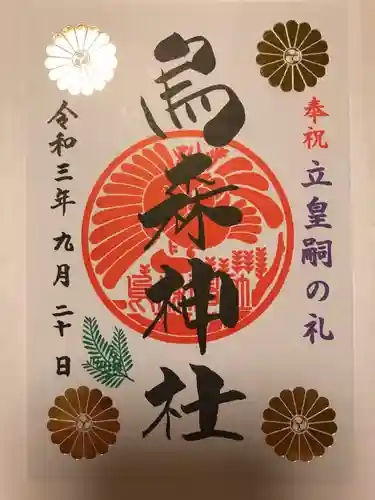 奉祝 立皇嗣の礼
烏森神社
令和三年 九月 二十日